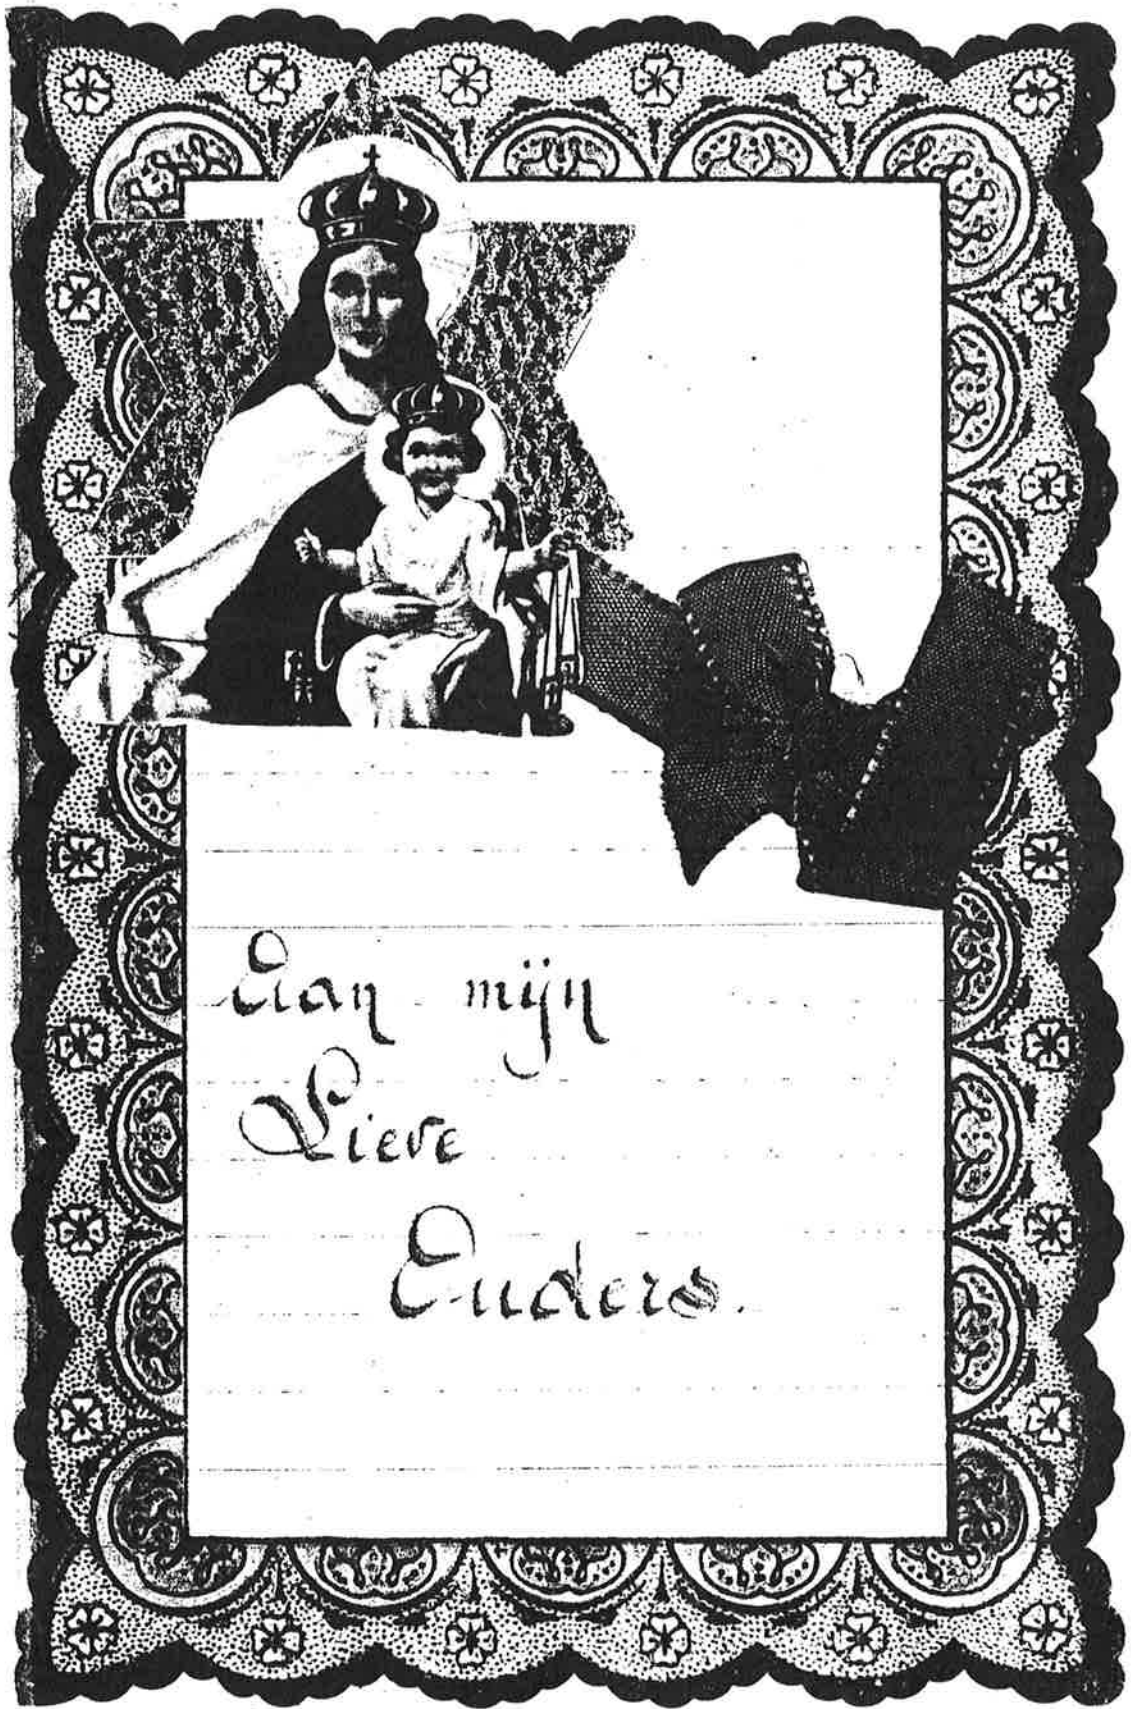 Aan mijn
Lieve
Ouders.